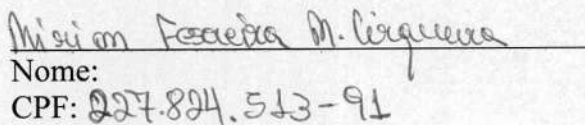 Miriam Ferreira M. Cirqueira
Nome:
CPF: 227.824.513-91